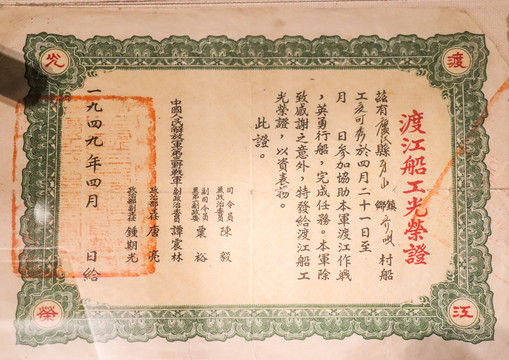 渡江船工光榮證
茲有 縣 山 鎮鄉 村船
工 於四月二十一日至
月 日參加協助本軍渡江作戰
，英勇行船，完成任務。本軍除
致感謝之意外，特發給渡江船工
光榮證，以資表揚。
此證。
司令員兼政治委員 陳毅
副司令員兼第二副政委 粟裕
副政治委員 譚震林
中國人民解放軍第三野戰軍
政治部主任 唐亮
政治部副主任 鍾期光
一九四九年四月 日給
光
渡
榮
江